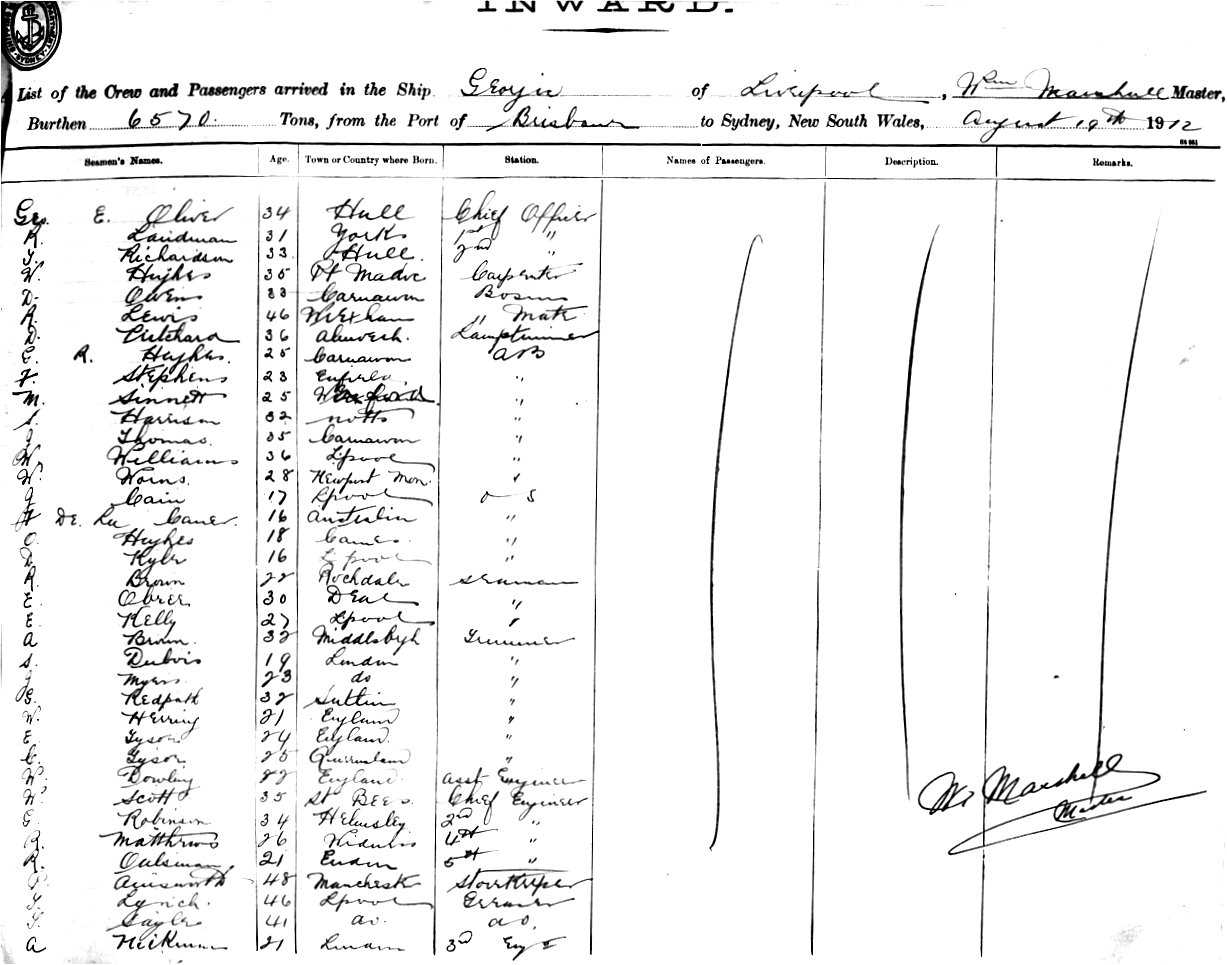 INWARD.
List of the Crew and Passengers arrived in the Ship Georgic of Liverpool, Wm Marshall Master,
Burthen 6570 Tons, from the Port of Brisbane to Sydney, New South Wales, August 19th 1912
Seamen's Names. Age. Town or Country where Born. Station. Names of Passengers. Description. Remarks.
Geo. E. Oliver 34 Hull Chief Officer
R. Landman 31 Yorks 1st "
T. Richardson 33 Hull. 2nd "
W. Hughes 35 Pt Madoc Carpenter
D. Owens 33 Carnarvon Bosun
R. Lewis 46 Wrexham " Mate
D. Pritchard 36 Lamptrimmer
R. Hughes. 25 Carnarvon AB
F. Stephens 23 Enfield. "
M. Sinnett 25 Wexford "
S. Harrison 32 Notts "
J. Thomas. 35 Carnarvon "
W. Williams 36 Lpool "
W. Worns 28 Newport Mon. "
J Cain 17 Lpool O S
De La Cauer. 16 Australia "
O. Hughes 18 "
D. Kyler 16 Lpool "
R. Brown 22 Rochdale Seaman
E. Obree 30 Deal "
E. Kelly 27 Lpool "
A Brown. 32 Middlsbgh Trimmer
S. Dubois 19 London "
J Myers 23 do "
G. Redpath 32 Sutton "
W. Herring 21 England "
E. Tyson 24 England. "
C. Tyson 25 Queensland "
W. Dowling 22 England. Asst Engineer
W. Scott 35 St Bees. Chief Engineer
G. Robinson 34 Helmsley 2nd "
R. Matthews 26 Widnes 4th "
R. Oulsman 21 London 5th "
Ainsworth 48 Manchester Storekeeper
T. Lynch. 46 Lpool Greaser
T. Sayles 41 do. do.
A Hickman 21 London 3rd Eng
Wm Marshall
Master